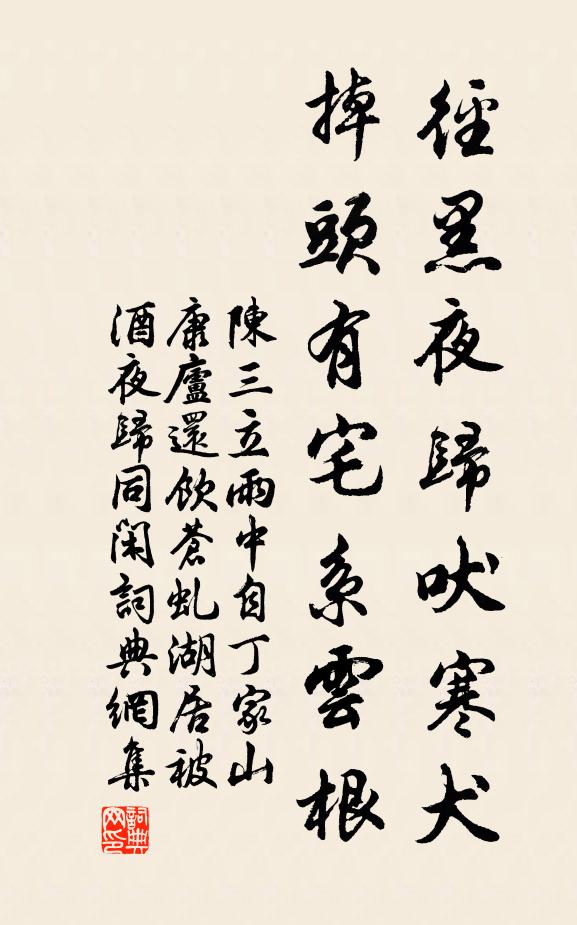 徑黑夜歸吠寒犬
掉頭有宅系雲根
陳三立雨中自丁家山
康廬還飲蒼虬湖居被
酒夜歸同閑詞典網集
詞典網印